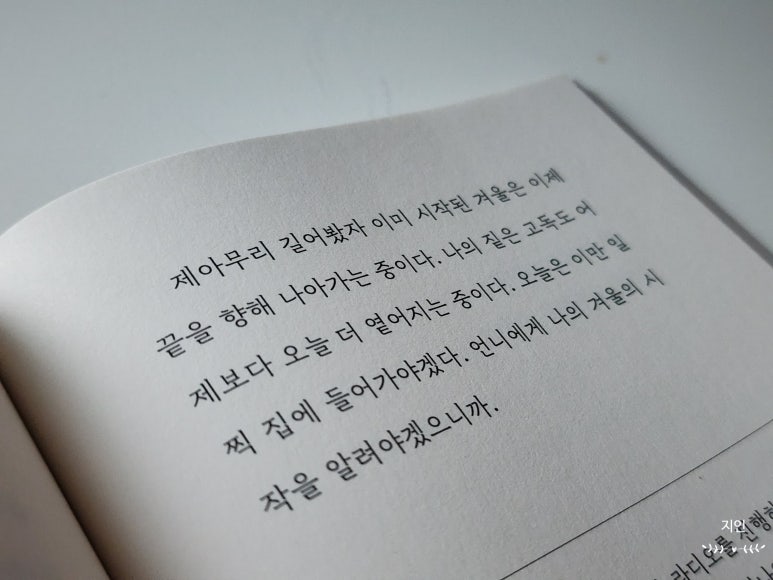 제아무리 길어봤자 이미 시작된 겨울은 이제
끝을 향해 나아가는 중이다. 나의 짙은 고독도 어
제보다 오늘 더 옅어지는 중이다. 오늘은 이만 일
찍 집에 들어가야겠다. 언니에게 나의 겨울의 시
작을 알려야겠으니까.
라디오를 진행하
지인